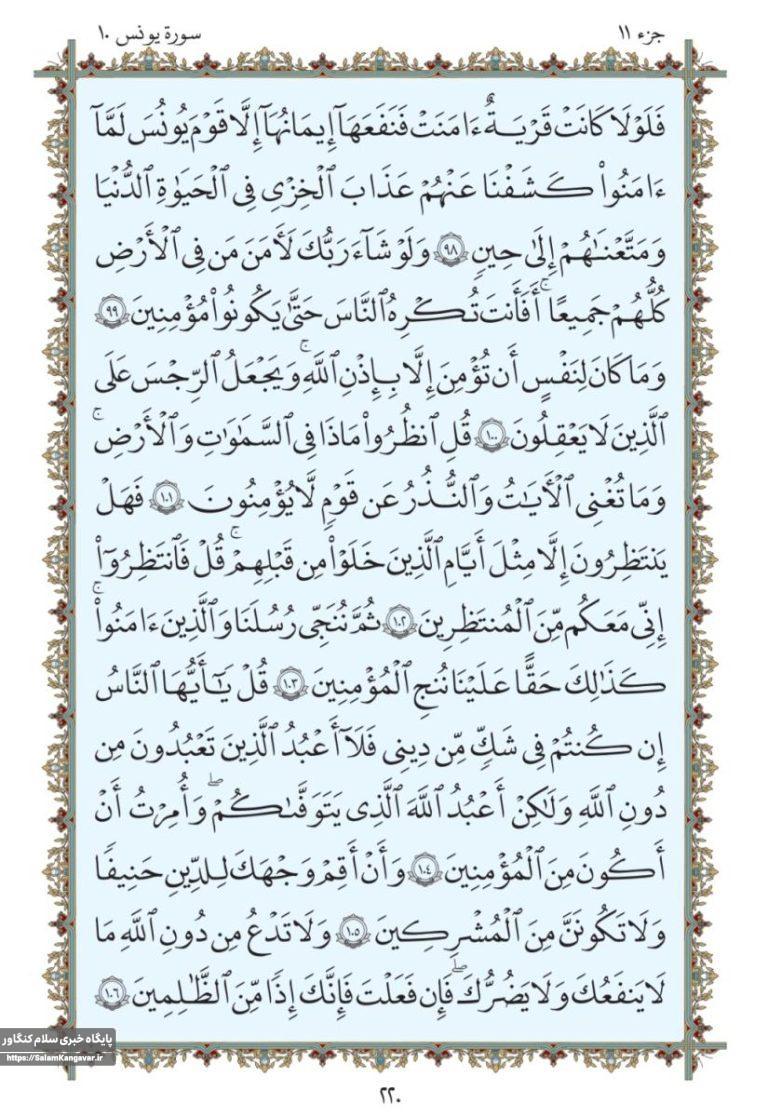 جزء ١١
سورة يونس ١٠
فَلَوْلَا كَانَتْ قَرْيَةٌ ءَامَنَتْ فَنَفَعَهَآ إِيمَانُهَآ إِلَّا قَوْمَ يُونُسَ لَمَّآ
ءَامَنُوا۟ كَشَفْنَا عَنْهُمْ عَذَابَ ٱلْخِزْىِ فِى ٱلْحَيَوٰةِ ٱلدُّنْيَا
وَمَتَّعْنَـٰهُمْ إِلَىٰ حِينٍ ٩٨ وَلَوْ شَآءَ رَبُّكَ لَـَٔامَنَ مَن فِى ٱلْأَرْضِ
كُلُّهُمْ جَمِيعًا ۚ أَفَأَنتَ تُكْرِهُ ٱلنَّاسَ حَتَّىٰ يَكُونُوا۟ مُؤْمِنِينَ ٩٩
وَمَا كَانَ لِنَفْسٍ أَن تُؤْمِنَ إِلَّا بِإِذْنِ ٱللَّهِ ۚ وَيَجْعَلُ ٱلرِّجْسَ عَلَى
ٱلَّذِينَ لَا يَعْقِلُونَ ١٠٠ قُلِ ٱنظُرُوا۟ مَاذَا فِى ٱلسَّمَـٰوَٰتِ وَٱلْأَرْضِ ۚ
وَمَا تُغْنِى ٱلْـَٔايَـٰتُ وَٱلنُّذُرُ عَن قَوْمٍ لَّا يُؤْمِنُونَ ١٠١ فَهَلْ
يَنتَظِرُونَ إِلَّا مِثْلَ أَيَّامِ ٱلَّذِينَ خَلَوْا۟ مِن قَبْلِهِمْ ۚ قُلْ فَٱنتَظِرُوٓا۟
إِنِّى مَعَكُم مِّنَ ٱلْمُنتَظِرِينَ ١٠٢ ثُمَّ نُنَجِّى رُسُلَنَا وَٱلَّذِينَ ءَامَنُوا۟ ۚ
كَذَٰلِكَ حَقًّا عَلَيْنَا نُنجِ ٱلْمُؤْمِنِينَ ١٠٣ قُلْ يَـٰٓأَيُّهَا ٱلنَّاسُ
إِن كُنتُمْ فِى شَكٍّ مِّن دِينِى فَلَآ أَعْبُدُ ٱلَّذِينَ تَعْبُدُونَ مِن
دُونِ ٱللَّهِ وَلَـٰكِنْ أَعْبُدُ ٱللَّهَ ٱلَّذِى يَتَوَفَّىٰكُمْ ۖ وَأُمِرْتُ أَنْ
أَكُونَ مِنَ ٱلْمُؤْمِنِينَ ١٠٤ وَأَنْ أَقِمْ وَجْهَكَ لِلدِّينِ حَنِيفًا
وَلَا تَكُونَنَّ مِنَ ٱلْمُشْرِكِينَ ١٠٥ وَلَا تَدْعُ مِن دُونِ ٱللَّهِ مَا
لَا يَنفَعُكَ وَلَا يَضُرُّكَ ۖ فَإِن فَعَلْتَ فَإِنَّكَ إِذًا مِّنَ ٱلظَّـٰلِمِينَ ١٠٦
پایگاه خبری سلام کنگاور
https://SalamKangavar.ir
٢٢٠